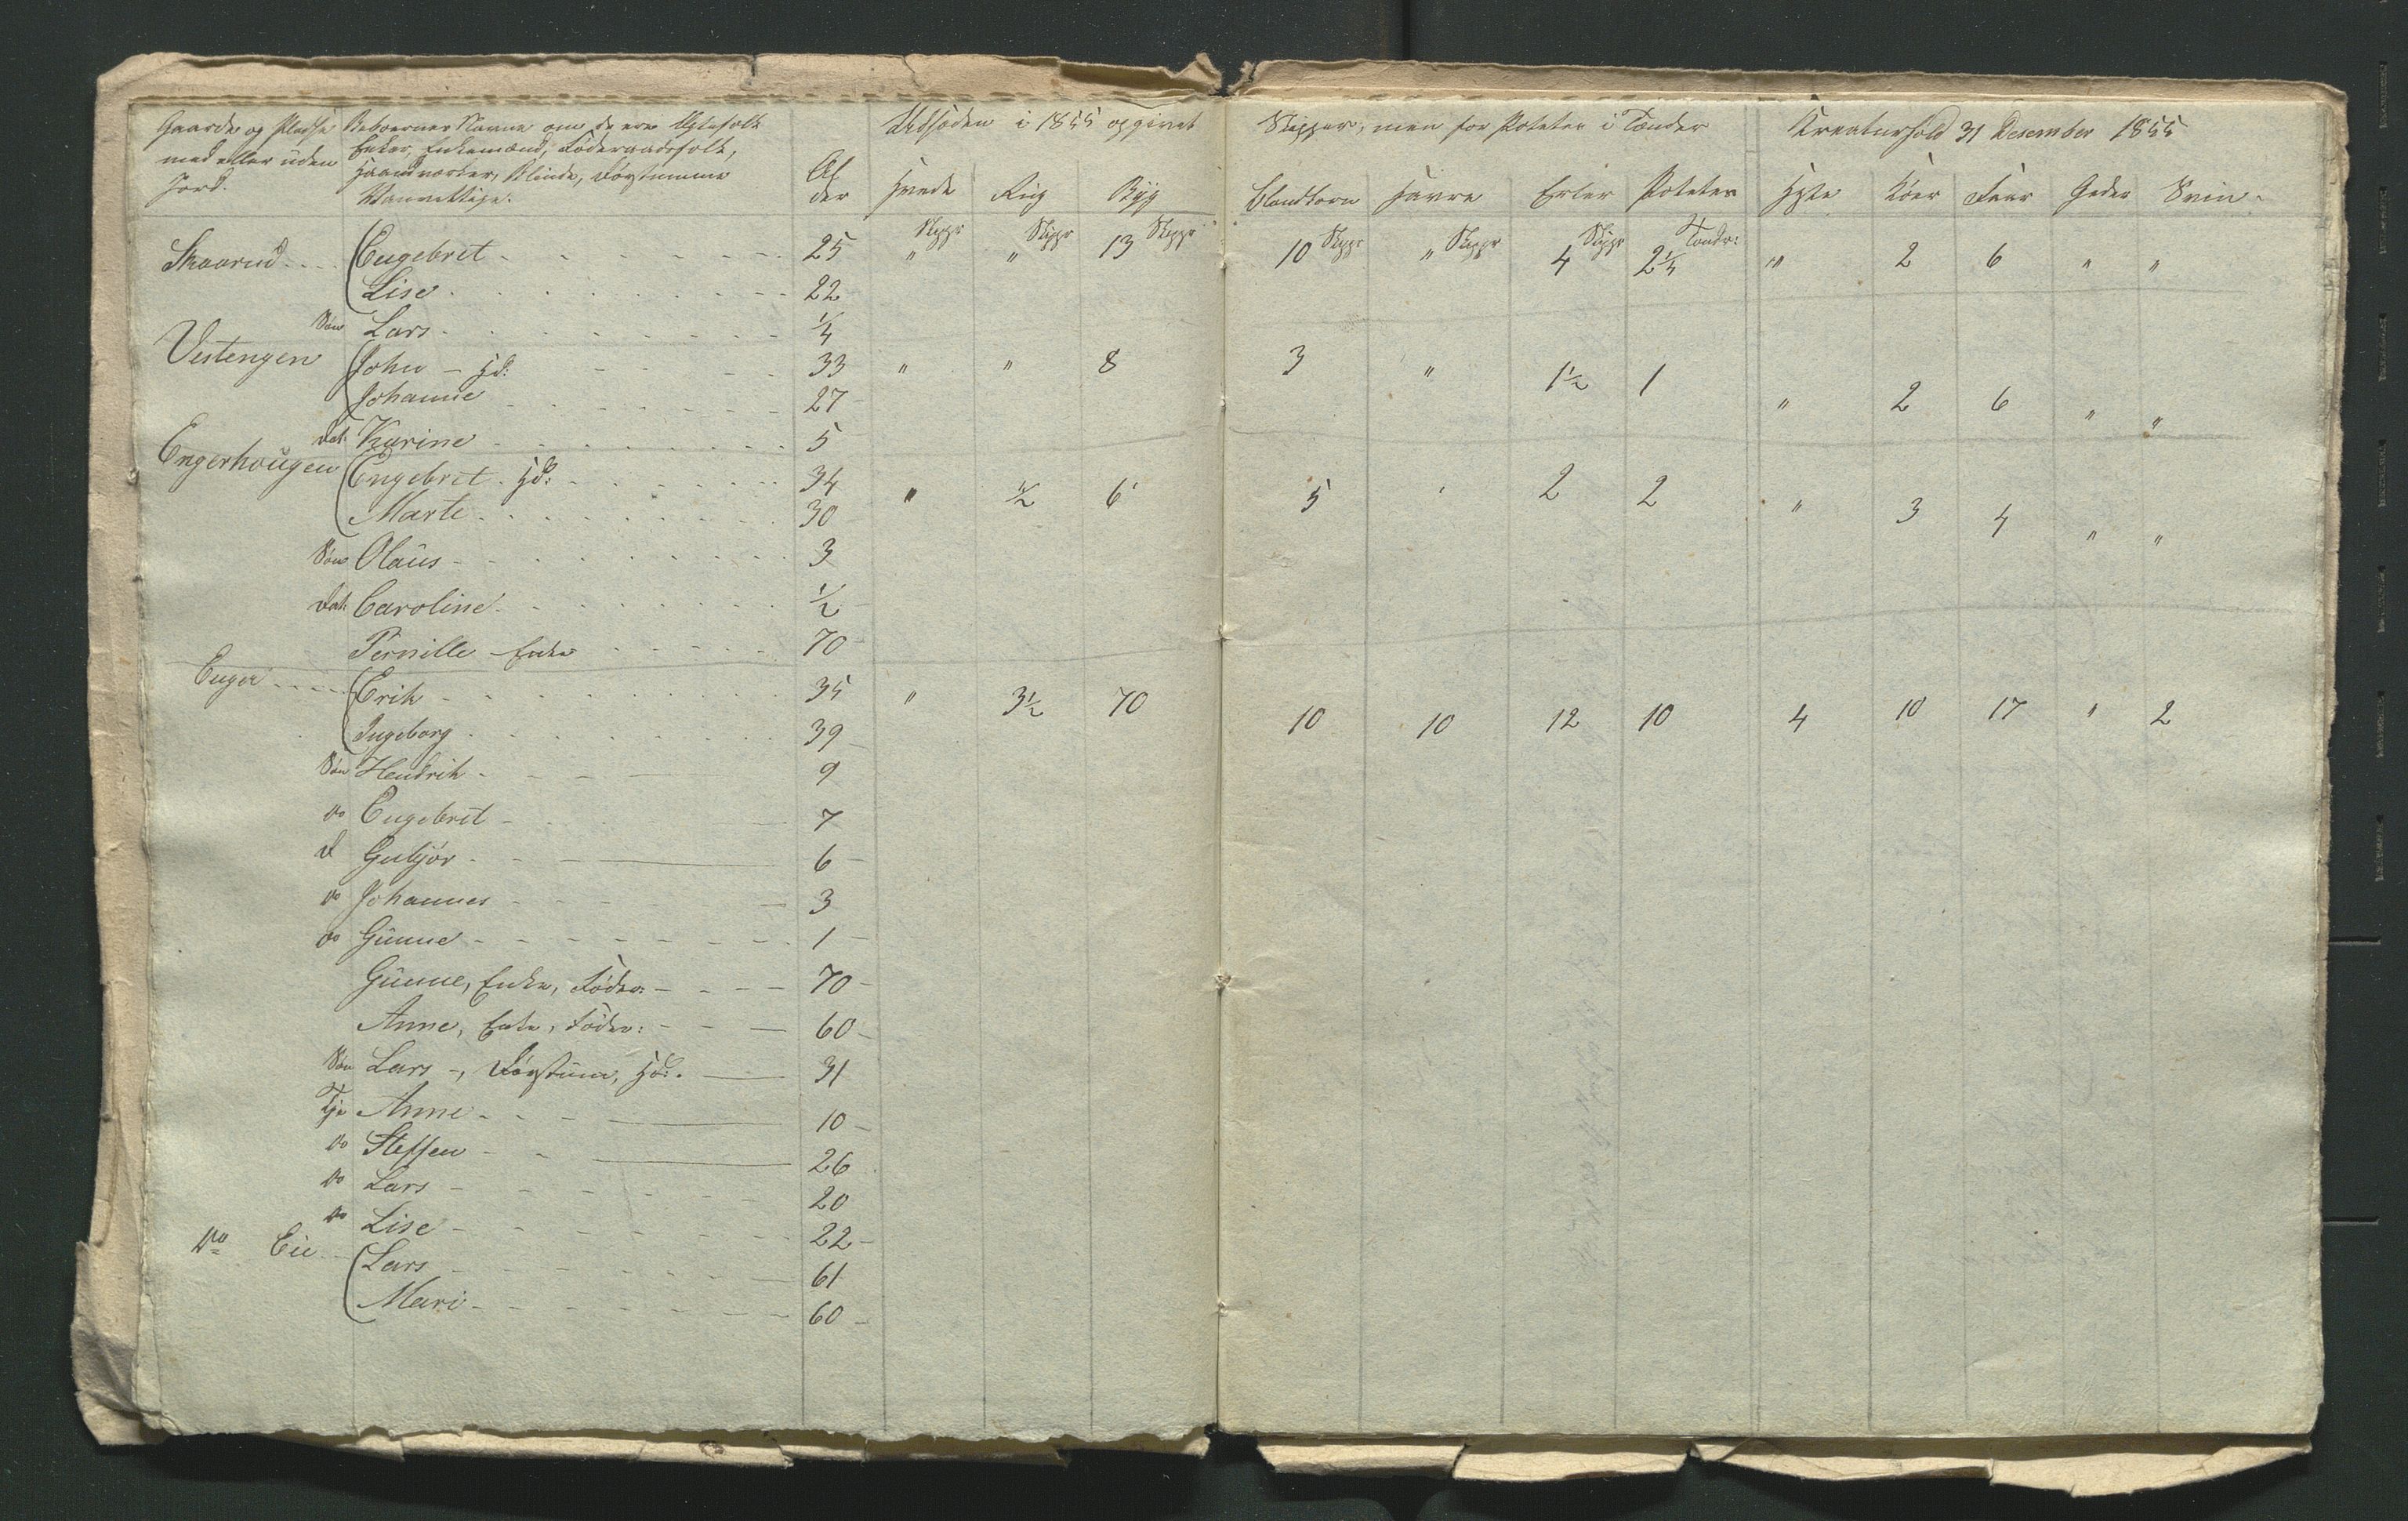 Gaarde og Pladse med eller uden Jord.
Beboernes Navne om de ere Ægtefolk Enker, Enkemænd, Föderaadsfolk, Haandværker, Blinde, Dövstumme Vanvittige.
Al der
Udsæden i 1855 opgivet
Skipper, men for Poteter i Tønder
Kreaturhold 31 Desember 1855
Hvede Rug Byg Blandkorn Havre Erter Poteter Hste Köer Faar Geder Svin
Skaarud Engebret 25 " Skppr " Skppr 13 Skppr 10 Skppr " Skppr 4 Skppr 2¼ Tønder: " 2 6 " "
Lise 22
Sön Lars ¼
Vestengen John - Hd: 33 " " 8 3 " 1½ 1 " 2 6 " "
Johanne 27
Dat: Karine 5
Engerhougen Engebret. Hd: 34 " ½ 6 5 " 2 2 " 3 4 " "
Marte 30
Sön Olaus 3
Dat: Caroline ½
Pernille - Enke 70
Enger Erik 35 " 3½ 70 10 10 12 10 4 10 17 " 2
Ingeborg 39
Sön Hendrik 9
do Engebret 7
D Gubjör 6
do Johannes 3
do Gunne 1
Gunne, Enke, Föder: 70
Anne, Enke, Föder: 60
Sön Lars -, Dövstum, Hd: 31
Tje Anne 10
do Steffen 26
do Lars 20
do Lise 22
do Eie Lars 61
Mari 60